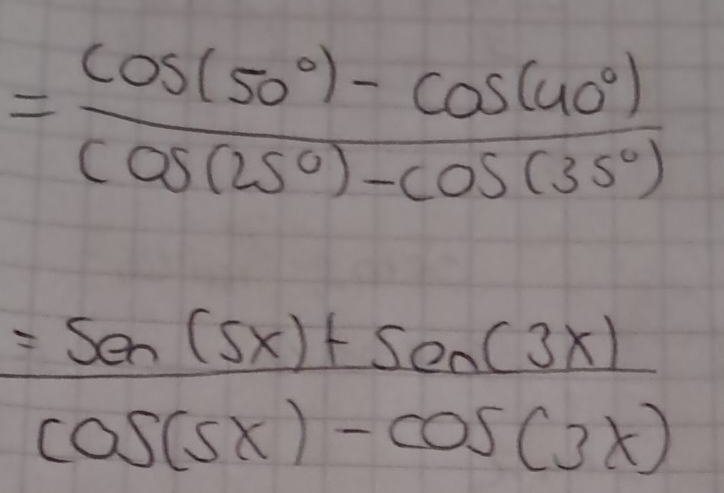 = cos(50°) - cos(40°)
cos(25°) - cos(35°)
= Sen (5x) + Sen(3x)
cos(5x) - cos(3x)